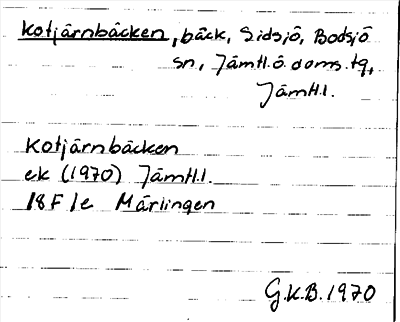 Kotjärnbäcken, bäck, Sidsjö, Bodsjö
sn, Jämtl.ö.doms.tg,
Jämtl.
Kotjärnbäcken
ek (1970) Jämtl.
18F 1e Märlingen
G.K.B. 1970